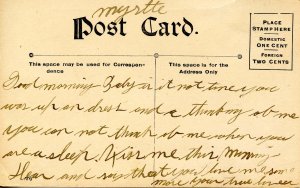 myrtle
Post Card.
PLACE
STAMP HERE
DOMESTIC
ONE CENT
FOREIGN
TWO CENTS
This space may be used for Correspon-
dence
This space is for the
Address Only
Good morning Baby is it not time you
was up an drest and a thinking ob me
you can not think ob me when you
are a sleep. Kiss me this morning
Hear and say that you love me
more your true lover